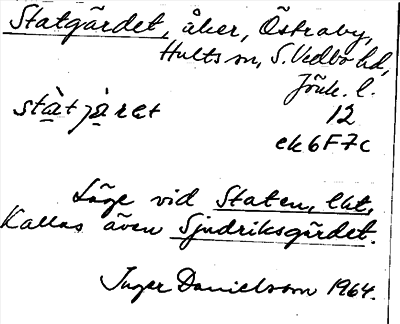 Statgärdet, åker, Östraby,
Hults sn, S. Vedbo hd,
Jönk. l.
stàtjä̀ret 12
ek 6F7c
Läge vid Staten, lht.
Kallas även Sjudriksgärdet.
Inger Danielsson 1964.